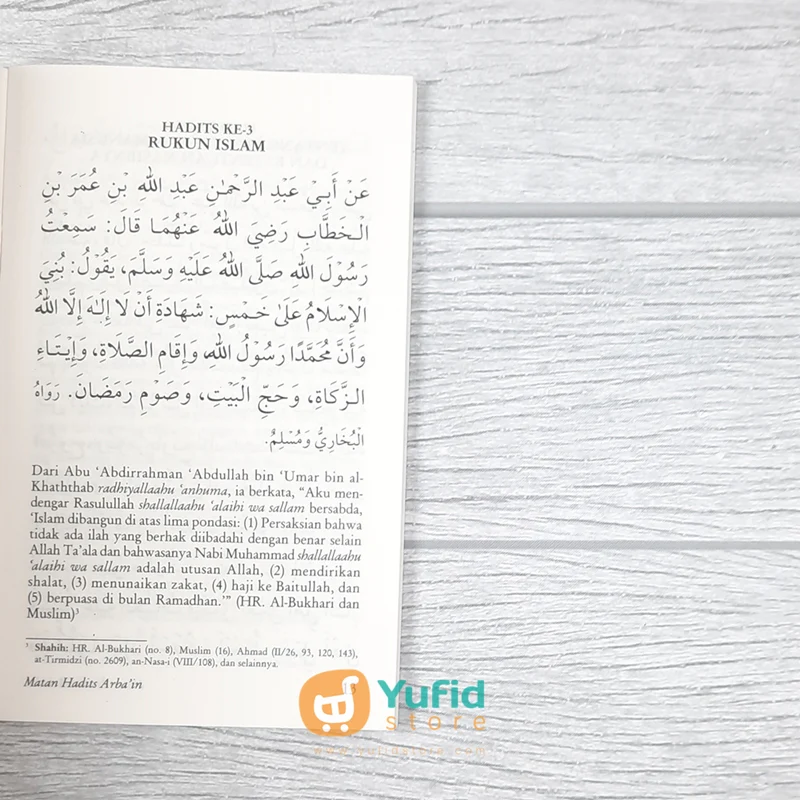 HADITS KE-3
RUKUN ISLAM
عَنْ أَبِيْ عَبْدِ الرَّحْمٰنِ عَبْدِ اللهِ بْنِ عُمَرَ بْنِ
الْخَطَّابِ رَضِيَ اللهُ عَنْهُمَا قَالَ: سَمِعْتُ
رَسُوْلَ اللهِ صَلَّى اللهُ عَلَيْهِ وَسَلَّمَ، يَقُوْلُ: بُنِيَ
الْإِسْلَامُ عَلَىٰ خَمْسٍ: شَهَادَةِ أَنْ لَا إِلٰهَ إِلَّا اللهُ
وَأَنَّ مُحَمَّدًا رَسُوْلُ اللهِ، وَإِقَامِ الصَّلَاةِ، وَإِيْتَاءِ
الزَّكَاةِ، وَحَجِّ الْبَيْتِ، وَصَوْمِ رَمَضَانَ. رَوَاهُ
الْبُخَارِيُّ وَمُسْلِمٌ.
Dari Abu ‘Abdirrahman ‘Abdullah bin ‘Umar bin al-
Khaththab radhiyallaahu ‘anhuma, ia berkata, “Aku men-
dengar Rasulullah shallallaahu ‘alaihi wa sallam bersabda,
‘Islam dibangun di atas lima pondasi: (1) Persaksian bahwa
tidak ada ilah yang berhak diibadahi dengan benar selain
Allah Ta’ala dan bahwasanya Nabi Muhammad shallallaahu
‘alaihi wa sallam adalah utusan Allah, (2) mendirikan
shalat, (3) menunaikan zakat, (4) haji ke Baitullah, dan
(5) berpuasa di bulan Ramadhan.’” (HR. Al-Bukhari dan
Muslim)³
³ Shahih: HR. Al-Bukhari (no. 8), Muslim (16), Ahmad (II/26, 93, 120, 143),
at-Tirmidzi (no. 2609), an-Nasa-i (VIII/108), dan selainnya.
Matan Hadits Arba’in
Yufid
store